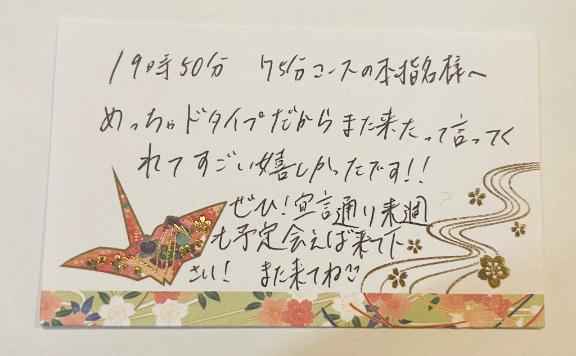 19時50分 75分コースの本指名様へ
めっちゃドタイプだからまた来たって言ってく
れてすごい嬉しかったです!!
ぜひ!宣言通り来週
も予定会えば来て下
さい! また来てね